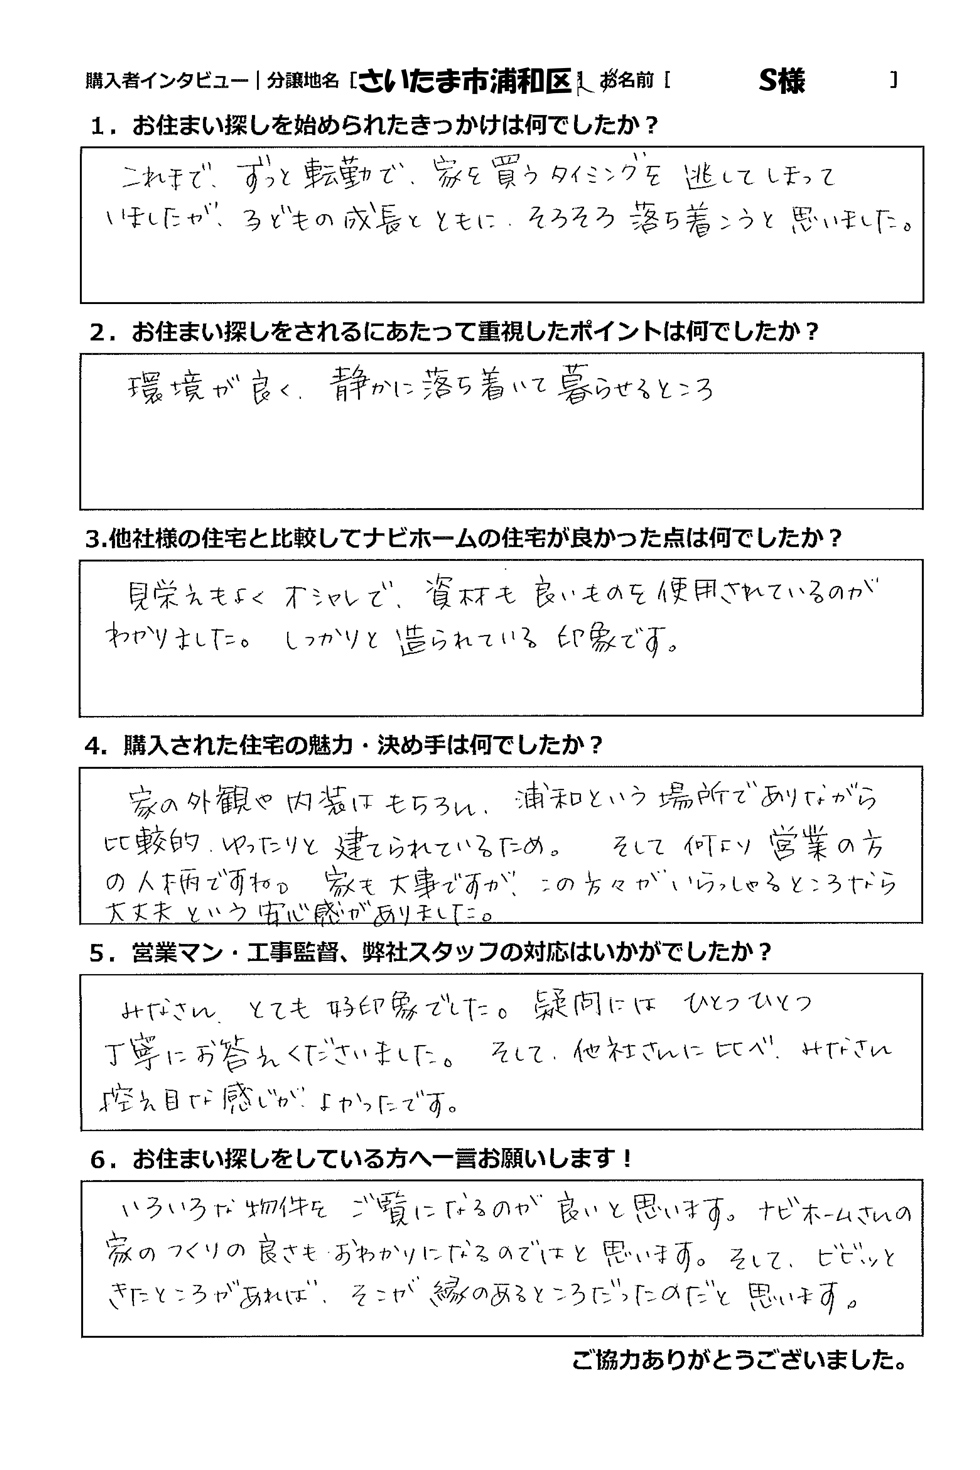 購入者インタビュー｜分譲地名［さいたま市浦和区］ お名前［ S様 ］
１．お住まい探しを始められたきっかけは何でしたか？
これまで、ずっと転勤で、家を買うタイミングを逃してしまって
いましたが、子どもの成長とともに、そろそろ落ち着こうと思いました。
２．お住まい探しをされるにあたって重視したポイントは何でしたか？
環境が良く、静かに落ち着いて暮らせるところ
3.他社様の住宅と比較してナビホームの住宅が良かった点は何でしたか？
見栄えもよくオシャレで、資材も良いものを使用されているのが
わかりました。しっかりと造られている印象です。
4．購入された住宅の魅力・決め手は何でしたか？
家の外観や内装はもちろん、浦和という場所でありながら
比較的、ゆったりと建てられているため。そして何より営業の方
の人柄ですね。家も大事ですが、この方々がいらっしゃるところなら
大丈夫という安心感がありました。
５．営業マン・工事監督、弊社スタッフの対応はいかがでしたか？
みなさん、とても好印象でした。疑問にはひとつひとつ
丁寧にお答えくださいました。そして、他社さんに比べ、みなさん
控え目な感じがよかったです。
６．お住まい探しをしている方へ一言お願いします！
いろいろな物件をご覧になるのが良いと思います。ナビホームさんの
家のつくりの良さもおわかりになるのではと思います。そして、ビビッと
きたところがあれば、そこが縁のあるところだったのだと思います。
ご協力ありがとうございました。